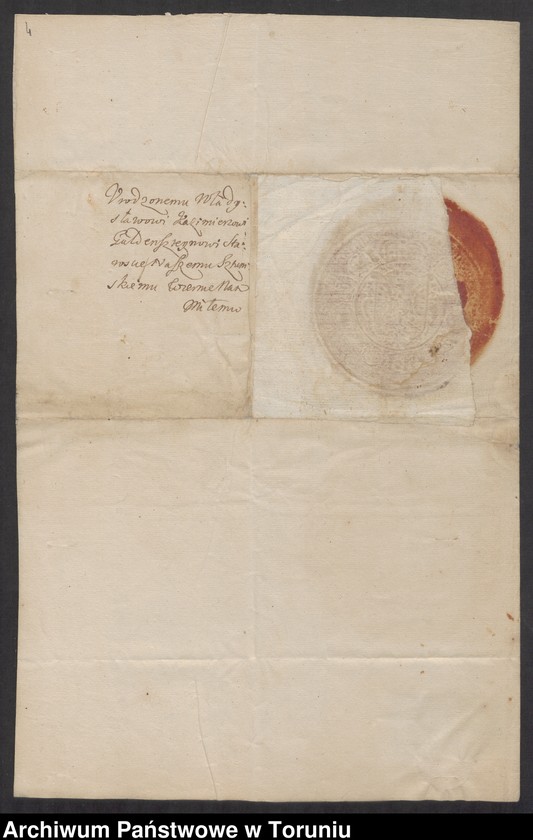 4
Vrodzonemu Włady-
sławowi Kazimierzowi
Guldensztęnowi Sta-
roscie Naszemu Sztum-
skiemu Wiernie Nam
Miłemu
Archiwum Państwowe w Toruniu